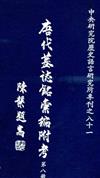 中央研究院歷史語言研究所專刊之八十一
唐代墓誌銘彙編附考
第八冊
陳槃題耑